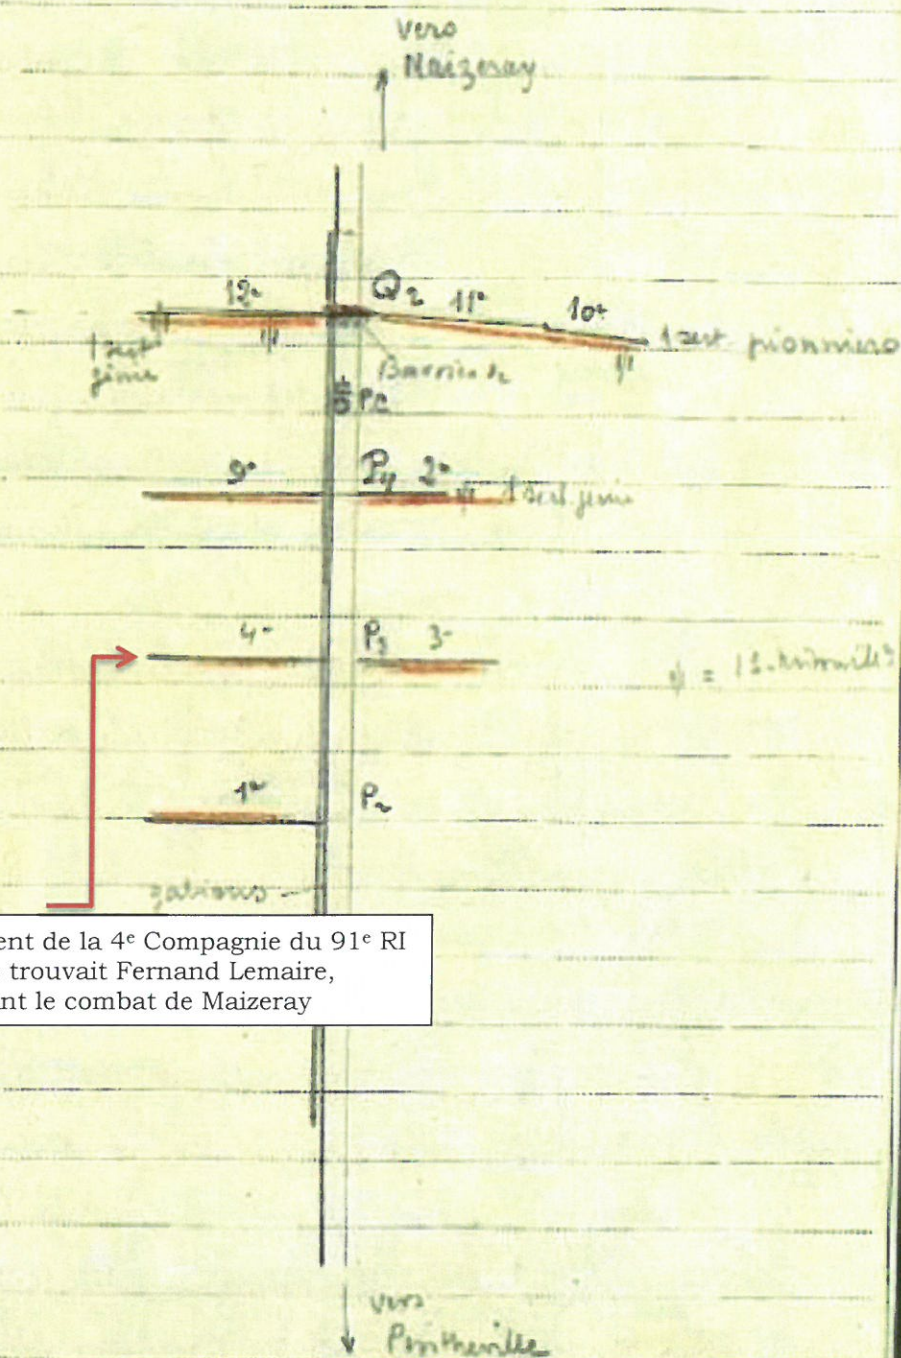 vers
Maizeray
12e Q2 11e 10e
1 sect génie
1 sect pionniers
Barricade
PC
9e P4 2e 1 sect génie
4e P3 3e
= 1 S. Mitrailles
1e P2
gabions
ent de la 4e Compagnie du 91e RI
trouvait Fernand Lemaire,
nt le combat de Maizeray
vers
Pintheville